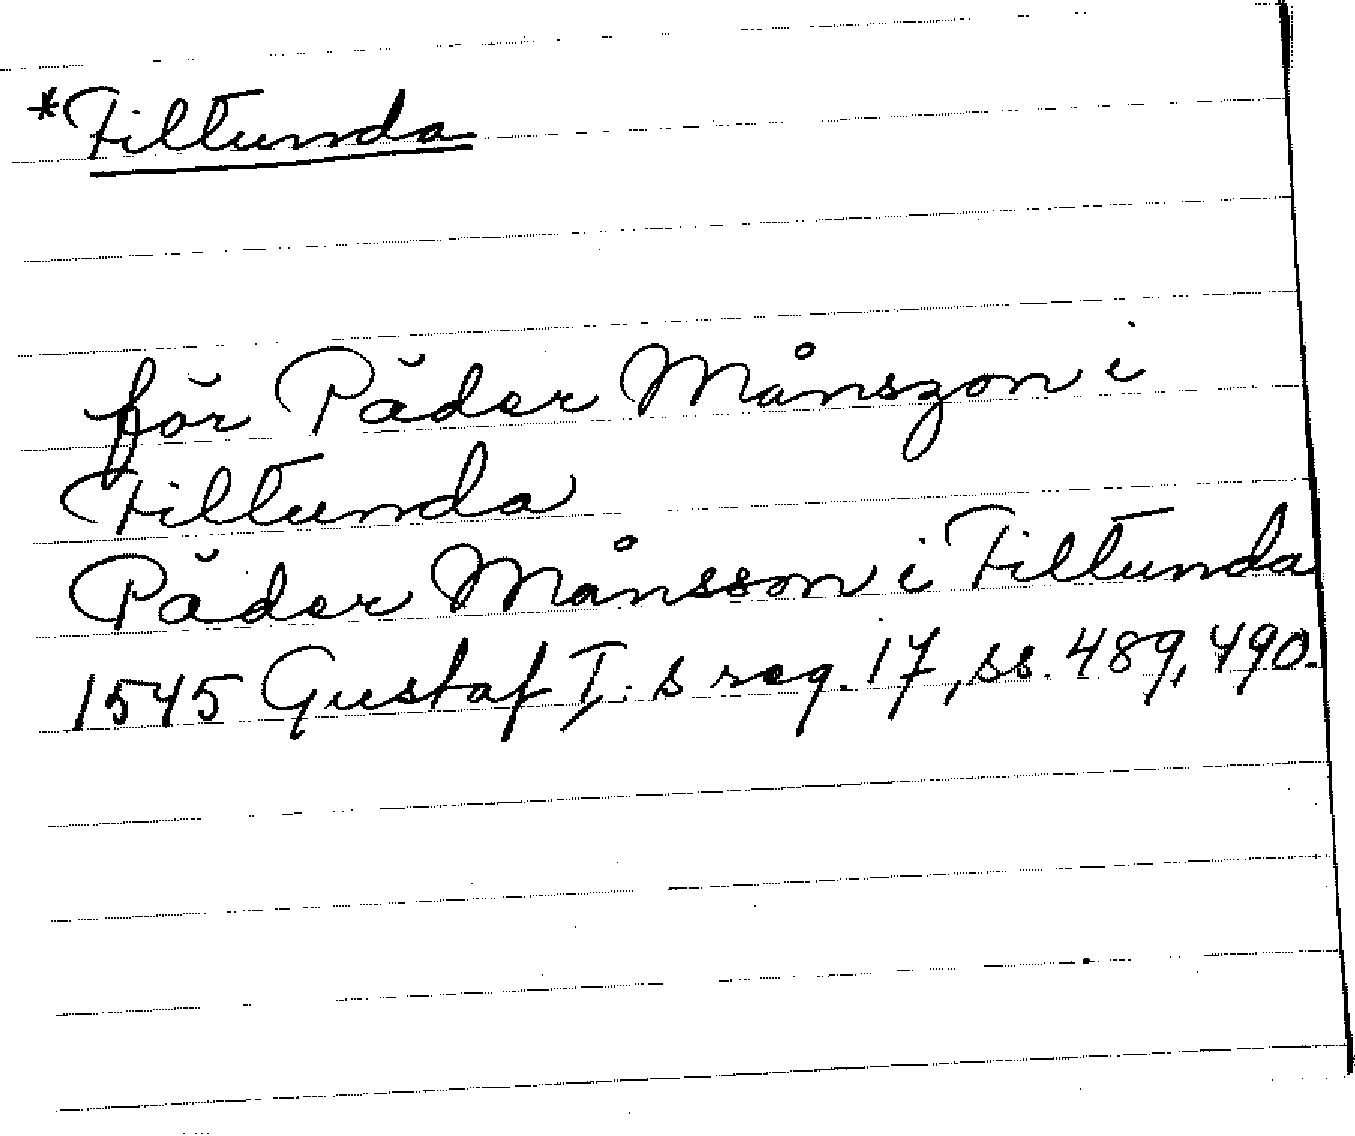 *Tiltunda
för Päder Månszon i
Tiltunda
Päder Månsson i Tiltunda
1545 Gustaf I:s reg. 17, ss. 489, 490.